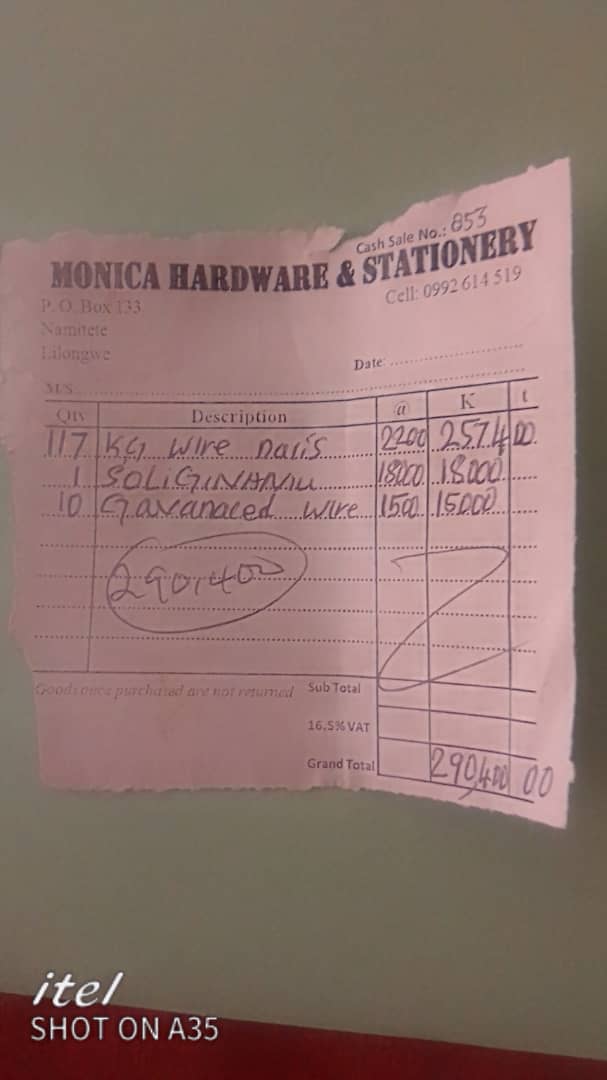 Cash Sale No.: 853
MONICA HARDWARE & STATIONERY
P. O. Box 133
Cell: 0992 614 519
Namitete
Lilongwe
Date:
M/S
Qty Description @ K t
117 KG wire nails 2200 257400
1 SOLIGINANIU 18000 18000
10 Gavanaced wire 1500 15000
290,400
Goods once purchased are not returned Sub Total
16.5% VAT
Grand Total 290,400 00
itel
SHOT ON A35